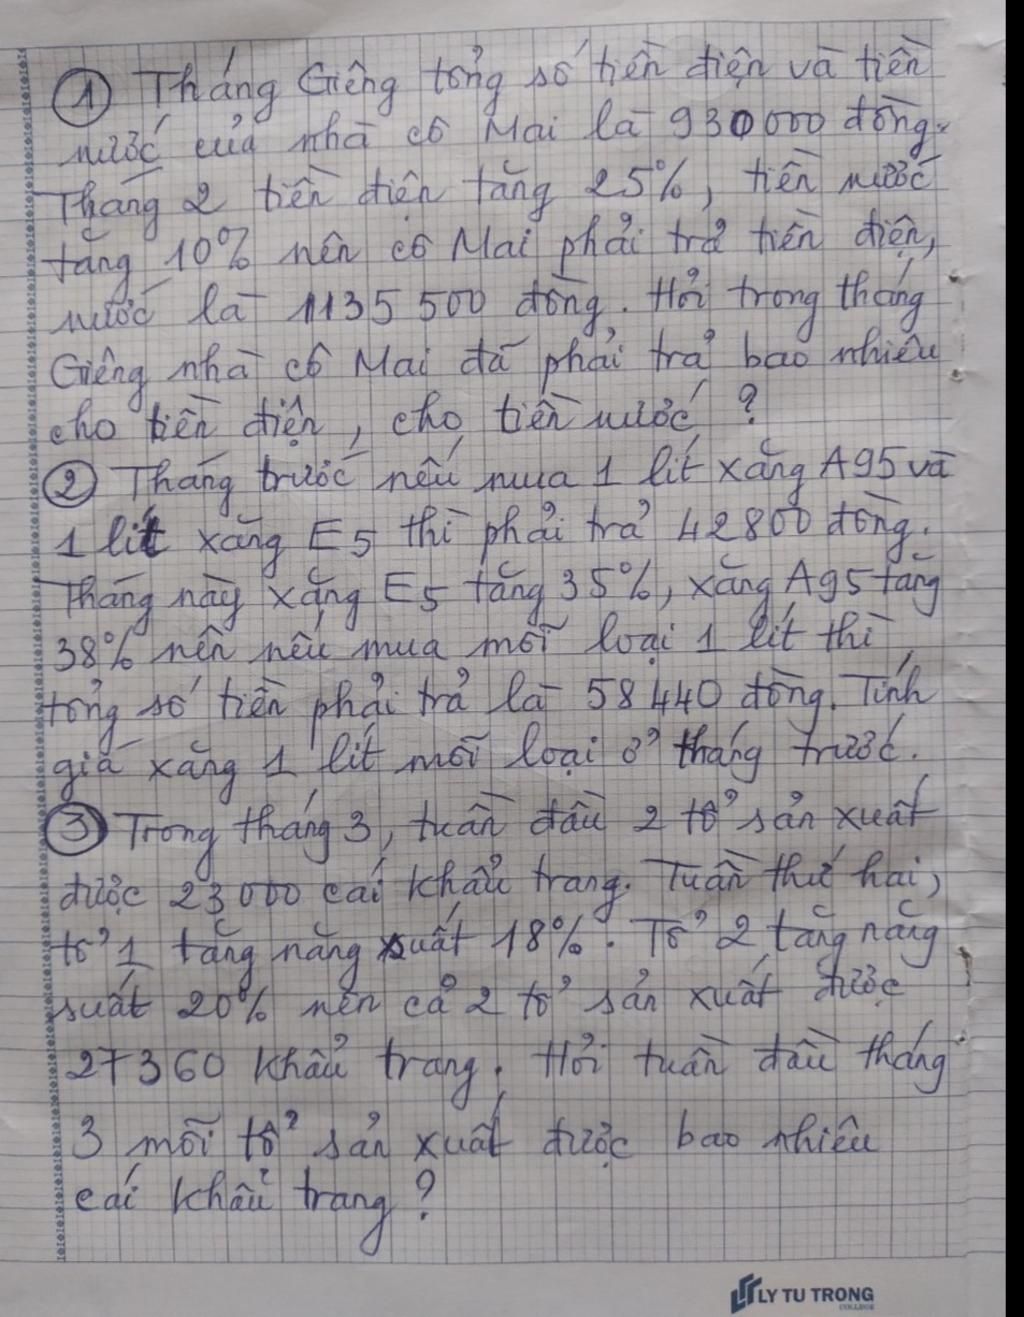 ① Tháng Giêng tổng số tiền điện và tiền
nước của nhà cô Mai là 930000 đồng.
Tháng 2 tiền điện tăng 25%, tiền nước
tăng 10% nên cô Mai phải trả tiền điện,
nước là 1135 500 đồng. Hỏi trong tháng
Giêng nhà cô Mai đã phải trả bao nhiêu
cho tiền điện, cho tiền nước ?
② Tháng trước nếu mua 1 lít xăng A95 và
1 lít xăng E5 thì phải trả 42800 đồng.
Tháng này xăng E5 tăng 35%, xăng A95 tăng
38% nên nếu mua mỗi loại 1 lít thì
tổng số tiền phải trả là 58 440 đồng. Tính
giá xăng 1 lít mỗi loại ở tháng trước.
③ Trong tháng 3, tuần đầu 2 tổ sản xuất
được 23 000 cái khẩu trang. Tuần thứ hai,
tổ 1 tăng năng xuất 18%. Tổ 2 tăng năng
suất 20% nên cả 2 tổ sản xuất được
27360 khẩu trang. Hỏi tuần đầu tháng
3 mỗi tổ sản xuất được bao nhiêu
cái khẩu trang ?
LY TU TRONG
COLLEGE